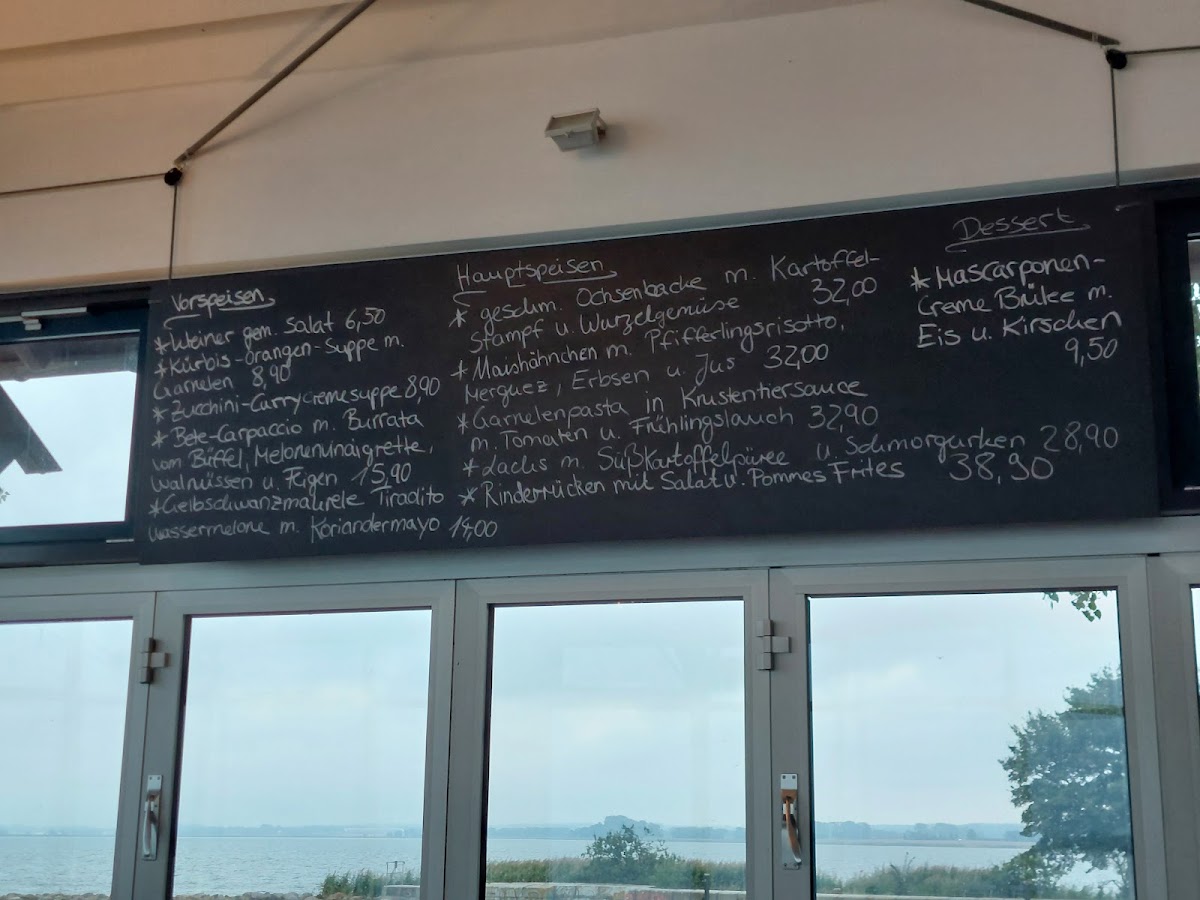 Vorspeisen
*kleiner gem. Salat 6,50
*Kürbis-orangen-Suppe m.
Garnelen 8,90
*Zucchini-Currycremesuppe 8,90
*Bete-Carpaccio m. Burrata
vom Büffel, Melonenvinaigrette,
walnüssen u. Feigen 15,90
*Gelbschwanzmakrele Tiradito
wassermelone m. Koriandermayo 14,00
Hauptspeisen
* geschm. Ochsenbacke m. Kartoffel-
Stampf u. Wurzelgemüse 32,00
*Maishähnchen m. Pfifferlingsrisotto,
Merguez, Erbsen u. Jus 32,00
*Garnelenpasta in Krustentiersauce
m. Tomaten u. Frühlingslauch 32,90
*Lachs m. Süßkartoffelpüree u. Schmorgurken 28,90
*Rinderrücken mit Salat u. Pommes Frites 38,90
Dessert
*Mascarponen-
Creme Brülee m.
Eis u. Kirschen
9,50